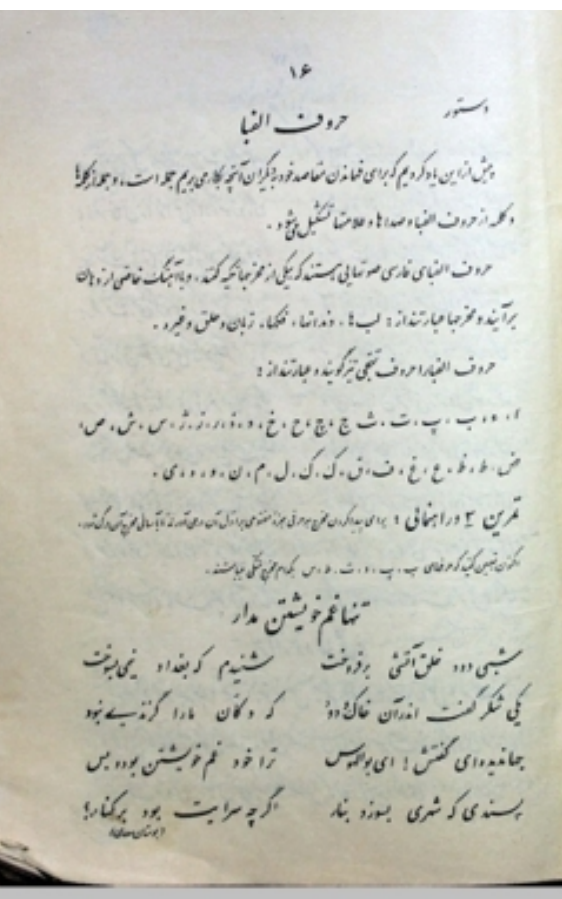 ۱۶
دستور
حروف الفبا
پیش از این یاد کردیم که برای فهماندن مقاصد خود بدیگران آنچه بکار می‌بریم جمله است، و جمله از کلمه‌ها
و کلمه از حروف الفبا و صداها و علامتها تشکیل میشود.
حروف الفبای فارسی صوتهایی هستند که بیکی از مخرجها تکیه کنند، و با آهنگ خاصی از دهان
برآیند و مخرجها عبارتند از: لب‌ها، دندانها، فکها، زبان و حلق و غیره.
حروف الفبا را حروف تهجی نیز گویند و عبارتند از:
ا، ب، پ، ت، ث، ج، چ، ح، خ، د، ذ، ر، ز، ژ، س، ش، ص،
ض، ط، ظ، ع، غ، ف، ق، ک، گ، ل، م، ن، و، ه، ی.
تمرین ۲ و راهنمائی: برای پیدا کردن مخرج هر حرفی همزهٔ مفتوحی بر اول آن در می‌آورند تا بآسانی مخرج آن درک شود.
اکنون تعیین کنید که حرفهای ب، پ، د، ت، ط، س بکدام مخرج متکی میباشند.
تنها غم خویشتن مدار
شبی دود خلق آتشی برفروخت شنیدم که بغداد نیمی بسوخت
یکی شکر گفت اندر آن خاک و دود که دکان ما را گزندی نبود
جهاندیده‌ای گفتش: ای بوالهوس ترا خود غم خویشتن بود و بس
پسندی که شهری بسوزد بنار اگرچه سرایت بود بر کنار؟
(بوستان سعدی)